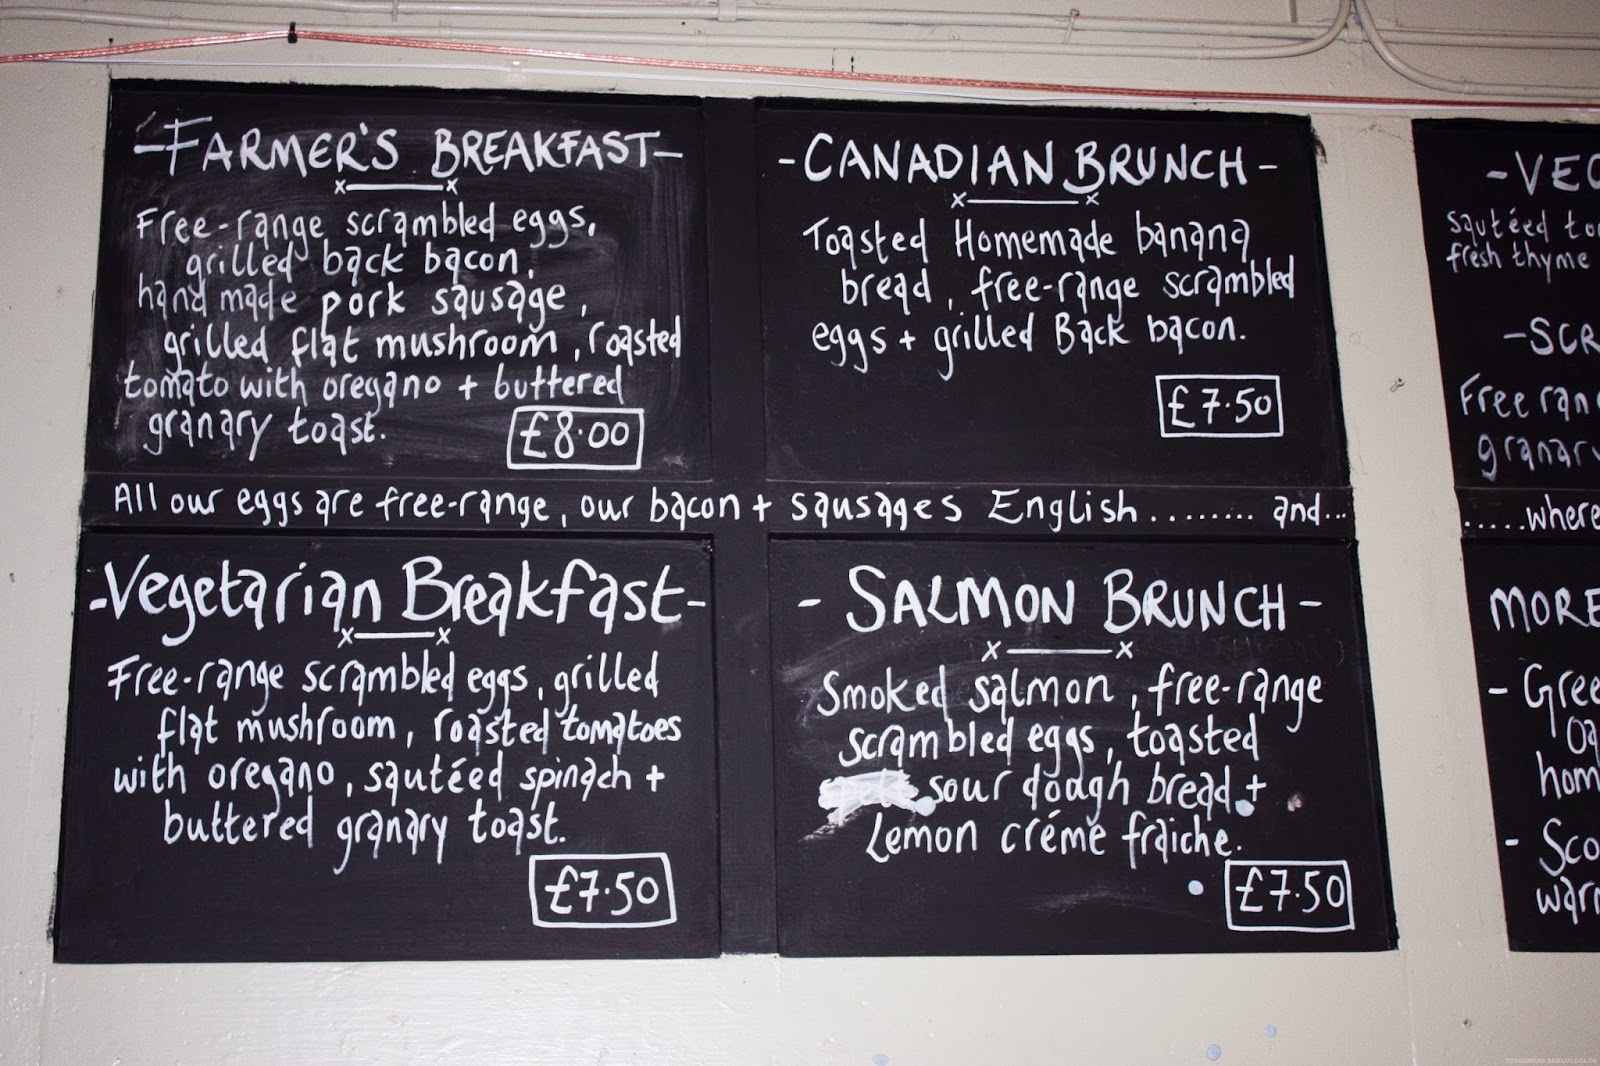 -FARMER'S BREAKFAST-
x——x
Free-range scrambled eggs,
grilled back bacon,
hand made pork sausage,
grilled flat mushroom, roasted
tomato with oregano + buttered
granary toast.
£8.00
-CANADIAN BRUNCH-
x——x
Toasted Homemade banana
bread, free-range scrambled
eggs + grilled Back bacon.
£7.50
All our eggs are free-range, our bacon + sausages English ........ and...
-Vegetarian Breakfast-
x——x
Free-range scrambled eggs, grilled
flat mushroom, roasted tomatoes
with oregano, sautéed spinach +
buttered granary toast.
£7.50
- SALMON BRUNCH -
x——x
Smoked salmon, free-range
scrambled eggs, toasted
sour dough bread +
Lemon créme fraiche.
£7.50
-VEG
sautéed to
fresh thyme
-SCR
Free ran
granary
.....where
MORE
- Gree
Oa
hom
- Sco
warm